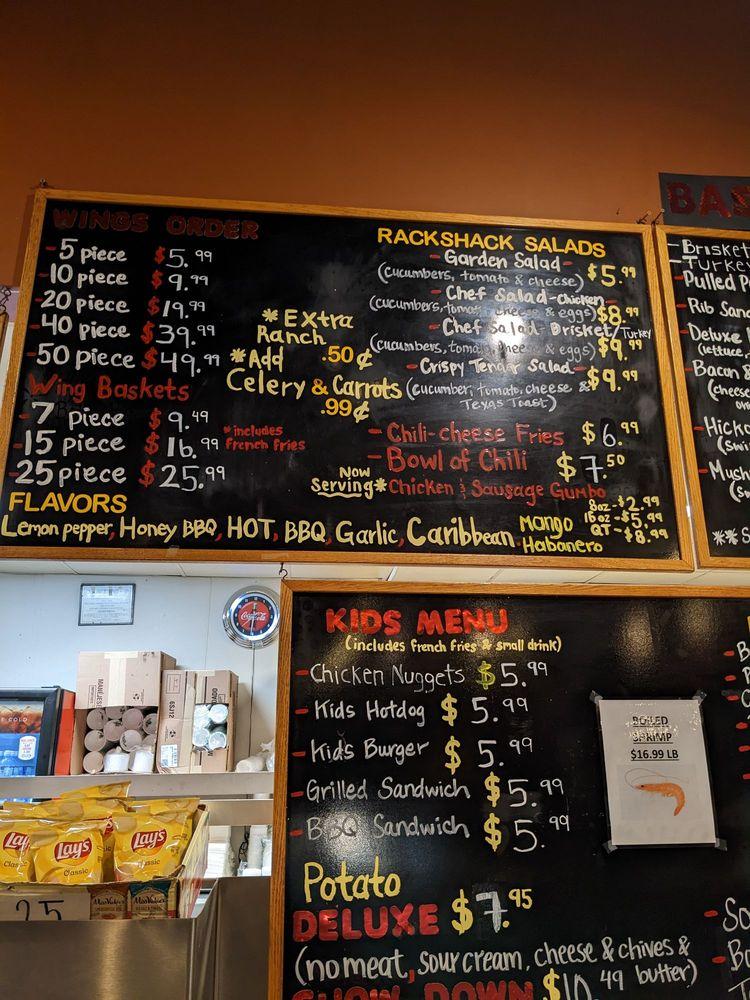 WINGS ORDER
- 5 piece $5.99
- 10 piece $9.99
- 20 piece $19.99
- 40 piece $39.99
- 50 piece $49.99
Wing Baskets
- 7 Piece $9.49
- 15 piece $16.99
- 25 piece $25.99
*includes
french fries
*Extra
Ranch
.50¢
*Add
Celery & Carrots
.99¢
RACKSHACK SALADS
- Garden Salad -
(cucumbers, tomato & cheese) $5.99
- Chef Salad - Chicken
(cucumbers, tomato, cheese & eggs) $8.99
- Chef Salad - Brisket/Turkey
(cucumbers, tomato, cheese & eggs) $9.99
- Crispy Tender Salad - $9.99
(cucumber, tomato, cheese &
Texas Toast)
- Chili-cheese Fries $6.99
- Bowl of Chili $7.50
Now
Serving* Chicken & Sausage Gumbo
8oz - $2.99
16oz - $5.99
QT - $8.99
FLAVORS
Lemon pepper, Honey BBQ, HOT, BBQ, Garlic, Caribbean
Mango
Habanero
BAS
- Brisket
- Turkey
- Pulled P
- Rib Sand
- Deluxe
(lettuce,
- Bacon &
(chees
- Hicko
(Swi
- Mush
(s
** S
Coca-Cola
KIDS MENU
(includes french fries & small drink)
- Chicken Nuggets $5.99
- Kids Hotdog $5.99
- Kids Burger $5.99
- Grilled Sandwich $5.99
- BBQ Sandwich $5.99
Potato
DELUXE $7.95
(no meat, sour cream, cheese & chives & butter)
SHOW DOWN $10.49
BOILED
SHRIMP
$16.99 LB
Lay's
Classic
Lay's
Classic
Lay's
Classic
25